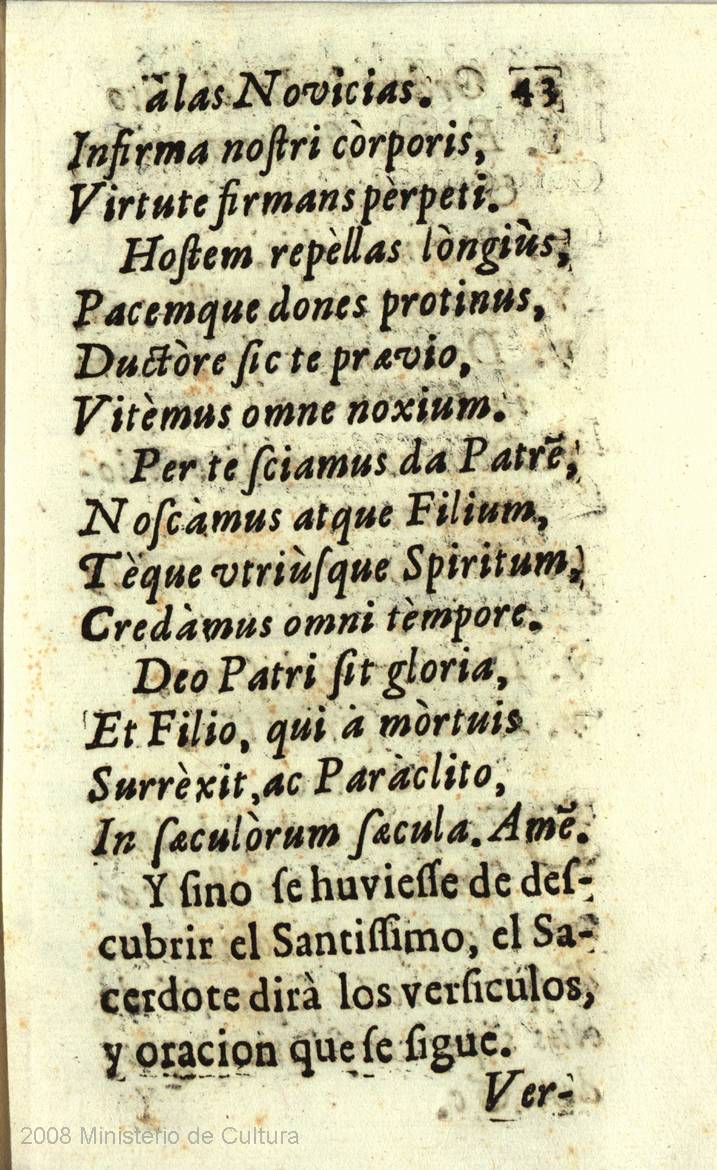 à las Novicias. 43
Infirma noſtri còrporis,
Virtute firmans pèrpeti.
Hoſtem repèllas lòngiùs,
Pacemque dones protinus,
Ductòre ſic te prævio,
Vitèmus omne noxium.
Per te ſciamus da Patrē,
Noſcàmus atque Filium,
Tèque vtriùſque Spiritum,
Credàmus omni tèmpore.
Deo Patri ſit gloria,
Et Filio, qui à mòrtuis
Surrèxit, ac Paràclito,
In ſæculòrum ſæcula. Amē.
Y ſino ſe huvieſſe de deſ-
cubrir el Santiſſimo, el Sa-
cerdote dirà los verſiculos,
y oracion que ſe ſigue.
Ver-
2008 Ministerio de Cultura